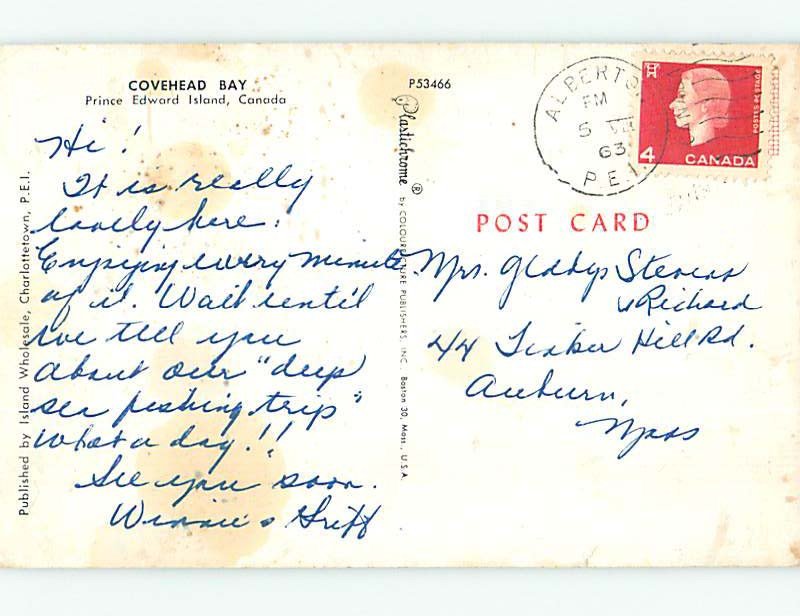 COVEHEAD BAY
Prince Edward Island, Canada
Hi!
It is really
lovely here.
Enjoying every minute
of it. Wait until
we tell you
about our "deep
sea fishing trip"
What a day!!
See you soon.
Winnie & Griff
Published by Island Wholesale, Charlottetown, P.E.I.
P53466
Plastichrome ®
by COLOURPICTURE PUBLISHERS, INC. Boston 30, Mass., U.S.A.
ALBERTON
PM
5 VII
63
P.E.I.
POSTES POSTAGE
4 CANADA
POST CARD
Mrs. Gladys Stevens
& Richard
44 Tinker Hill Rd.
Auburn,
Mass